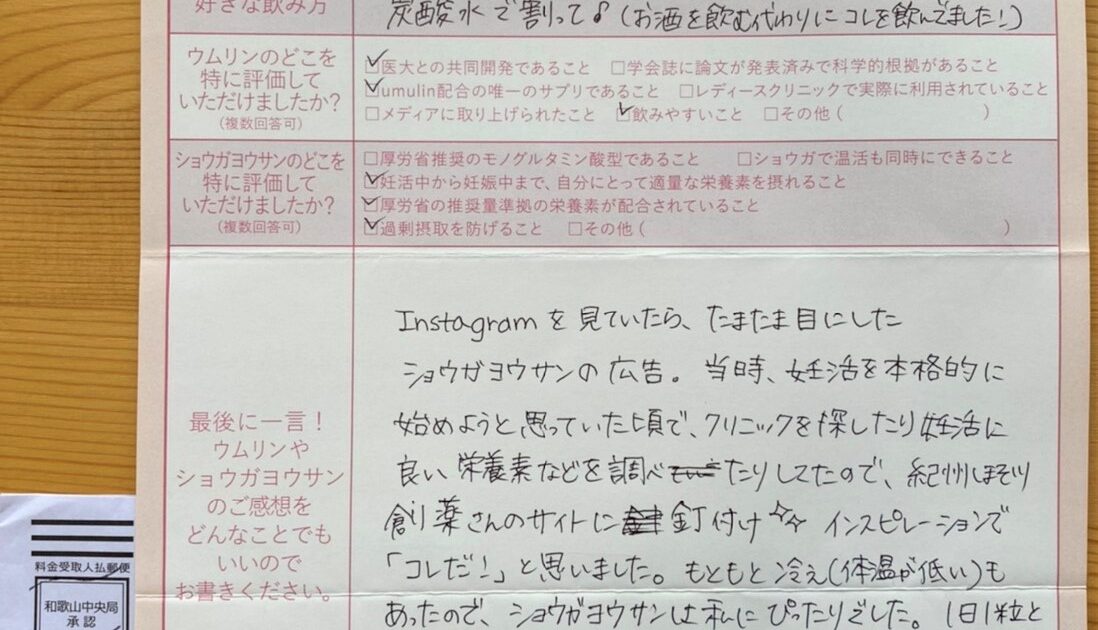 好きな飲み方
炭酸水で割って♪(お酒を飲む代わりにコレを飲んでました!)
ウムリンのどこを
特に評価して
いただけましたか?
(複数回答可)
☑医大との共同開発であること □学会誌に論文が発表済みで科学的根拠があること
☑umulin配合の唯一のサプリであること □レディースクリニックで実際に利用されていること
□メディアに取り上げられたこと ☑飲みやすいこと □その他( )
ショウガヨウサンのどこを
特に評価して
いただけましたか?
(複数回答可)
□厚労省推奨のモノグルタミン酸型であること □ショウガで温活も同時にできること
☑妊活中から妊娠中まで、自分にとって適量な栄養素を摂れること
☑厚労省の推奨量準拠の栄養素が配合されていること
☑過剰摂取を防げること □その他( )
最後に一言!
ウムリンや
ショウガヨウサン
のご感想を
どんなことでも
いいので
お書きください。
Instagramを見ていたら、たまたま目にした
ショウガヨウサンの広告。当時、妊活を本格的に
始めようと思っていた頃で、クリニックを探したり妊活に
良い栄養素などを調べたりしてたので、紀州ほそ川
創薬さんのサイトに釘付け✧✧ インスピレーションで
「コレだ!」と思いました。もともと冷え(体温が低い)も
あったので、ショウガヨウサンは私にぴったりでした。1日1粒と
料金受取人払郵便
和歌山中央局
承認